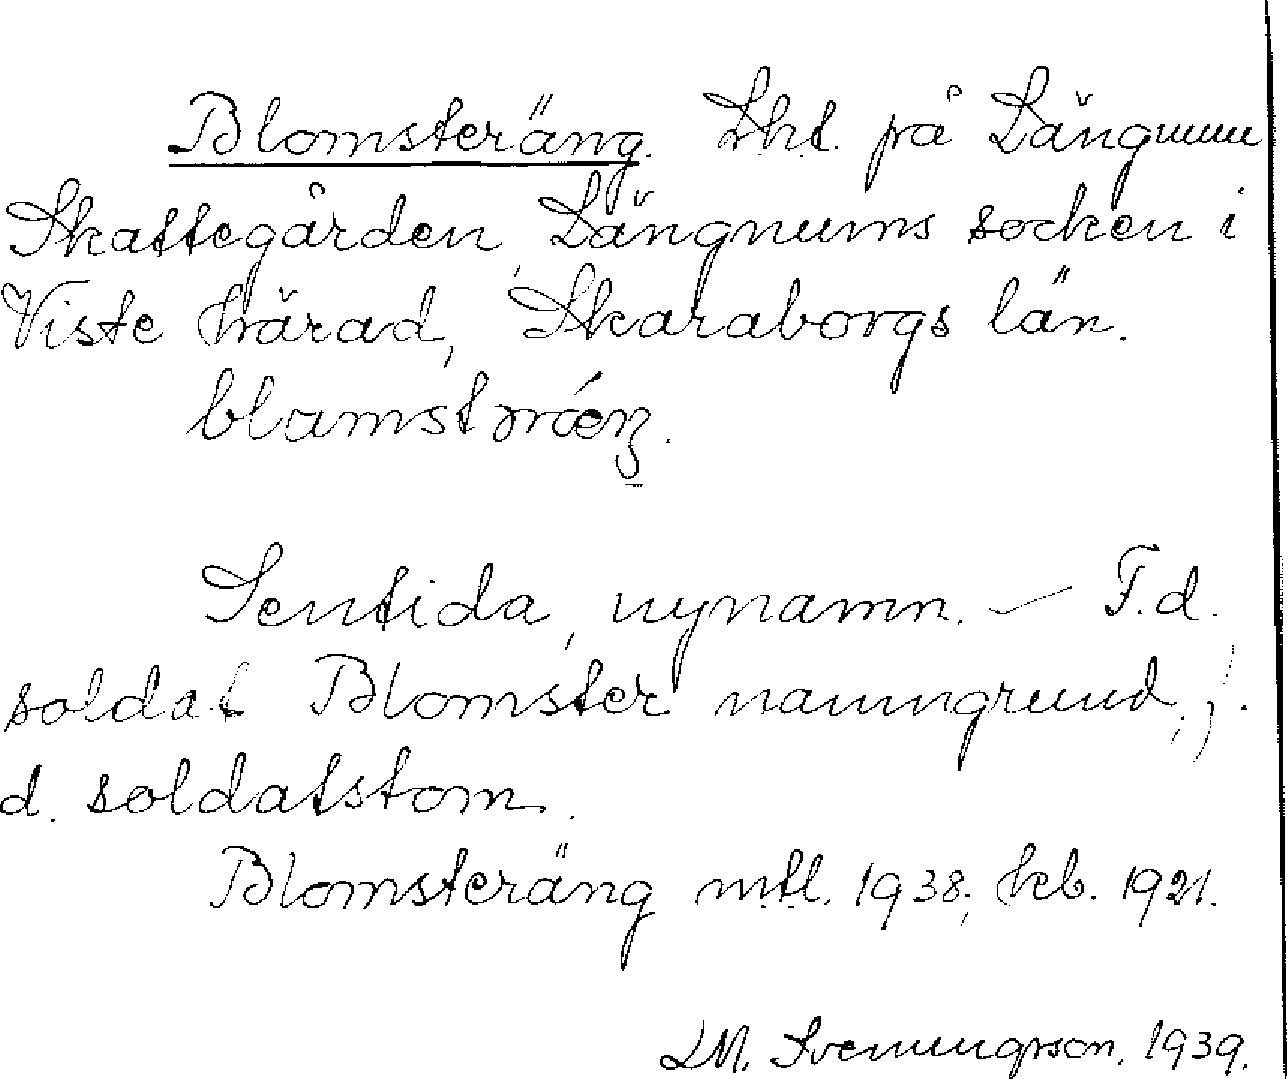 Blomsteräng. Lht. på Längnum
Skattegården, Längnums socken i
Viste härad, Skaraborgs län.
blamstərǽŋ.
Sentida, nynamn. — F.d.
soldat Blomster namngrund; j.
d. soldatstom.
Blomsteräng mtl. 1938; kb. 1921.
LM. Svenungsson. 1939.